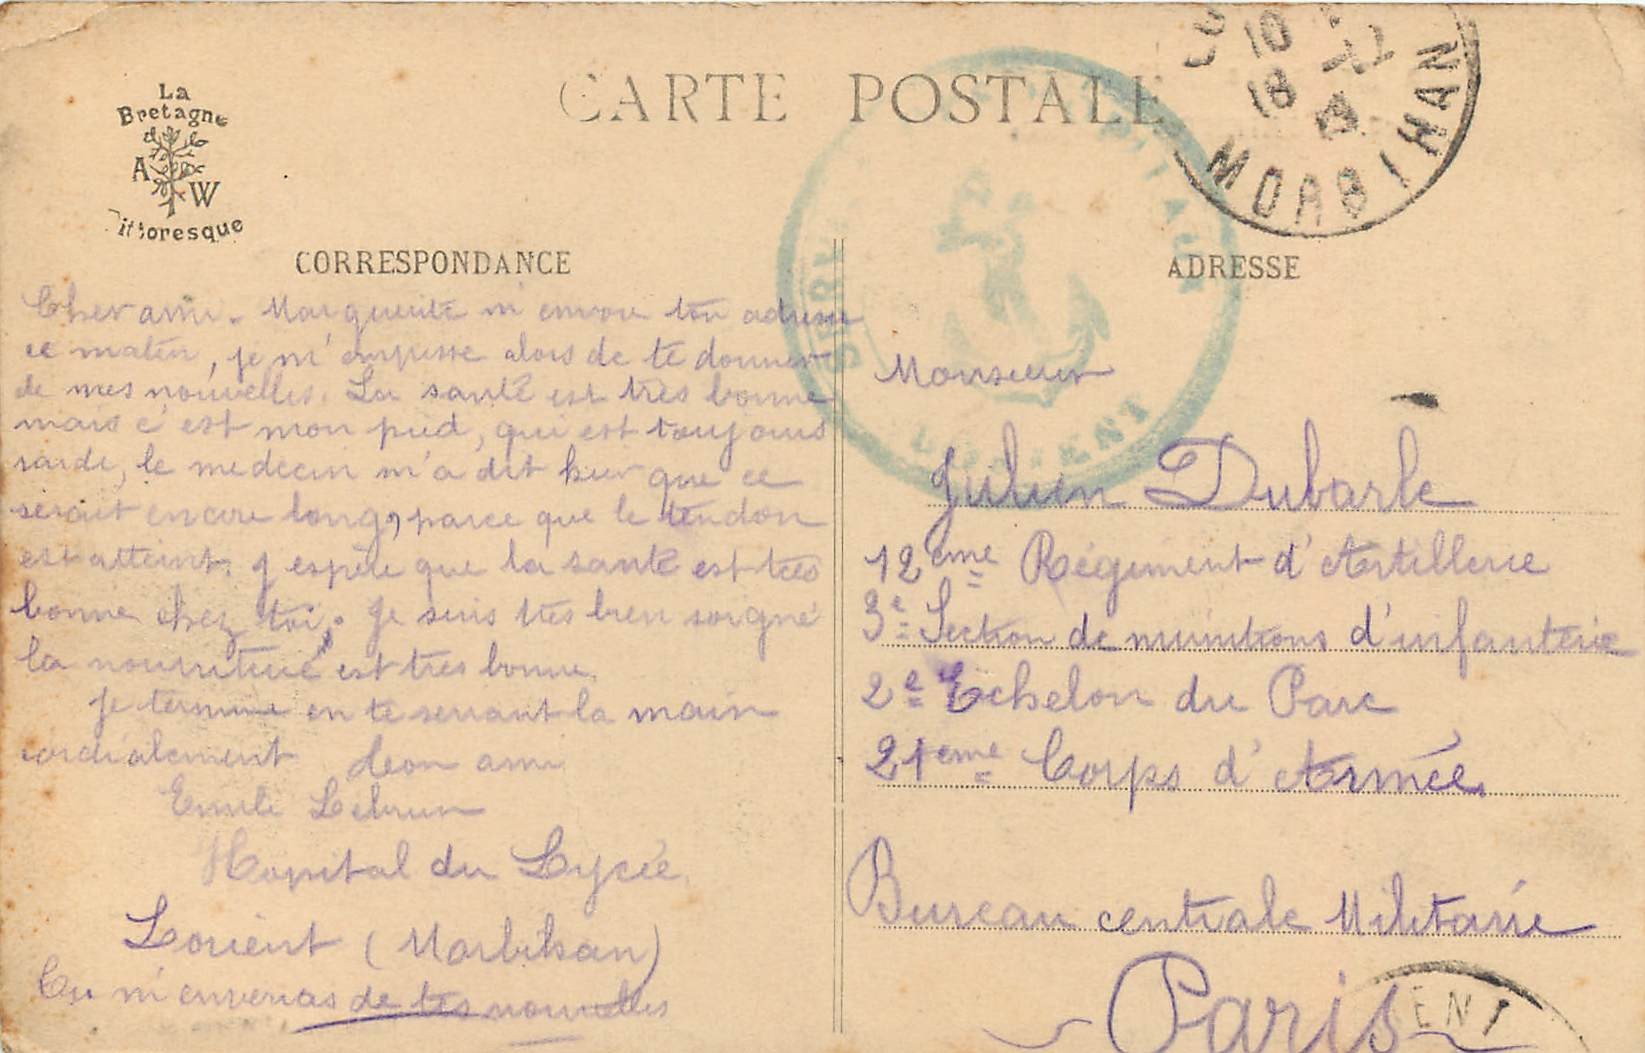 CARTE POSTALE
La
Bretagne
A W
Pittoresque
10
18
MORBIHAN
LORIENT
CORRESPONDANCE
Cher ami. Marguerite m'envoie ton adresse
ce matin, je m'empresse alors de te donner
de mes nouvelles. La santé est très bonne
mais c'est mon pied, qui est toujours
raide, le medecin m'a dit hier que ce
serait encore long, parce que le tendon
est atteint. J'espère que la santé est très
bonne chez toi. Je suis très bien soigné
la nourriture est très bonne.
Je termine en te serrant la main
cordialement ami
Emile Lebrun
Hopital du Lycée
Lorient (Morbihan)
Tu m'enverras de tes nouvelles
ADRESSE
Monsieur
Julien Dubarle
12eme Régiment d'Artillerie
3e Section de munitions d'infanterie
2e Echelon du Parc
21eme Corps d'Armée.
Bureau centrale Militaire
Paris
ENT